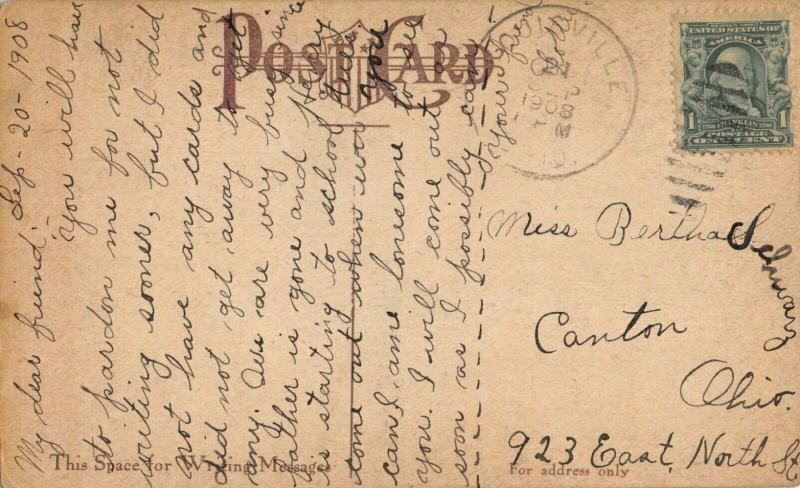 POST CARD
Sep- 20- 1908
My dear friend:
you will have
to pardon me for not
writing sooner, but I did
not have any cards and
did not get away to get
any. We are very busy since
father is gone and Harry
is starting to school
come out when you
can I ame lonesome to see
you. I will come out as
soon as I possibly can
Your frem
VILLE
1908
SERIES 1902
UNITED STATES OF
AMERICA
FRANKLIN
1 POSTAGE 1
ONE CENT
Miss Bertha Schwarz
Canton
Ohio.
923 East, North St
This Space for Writing Messages
For address only